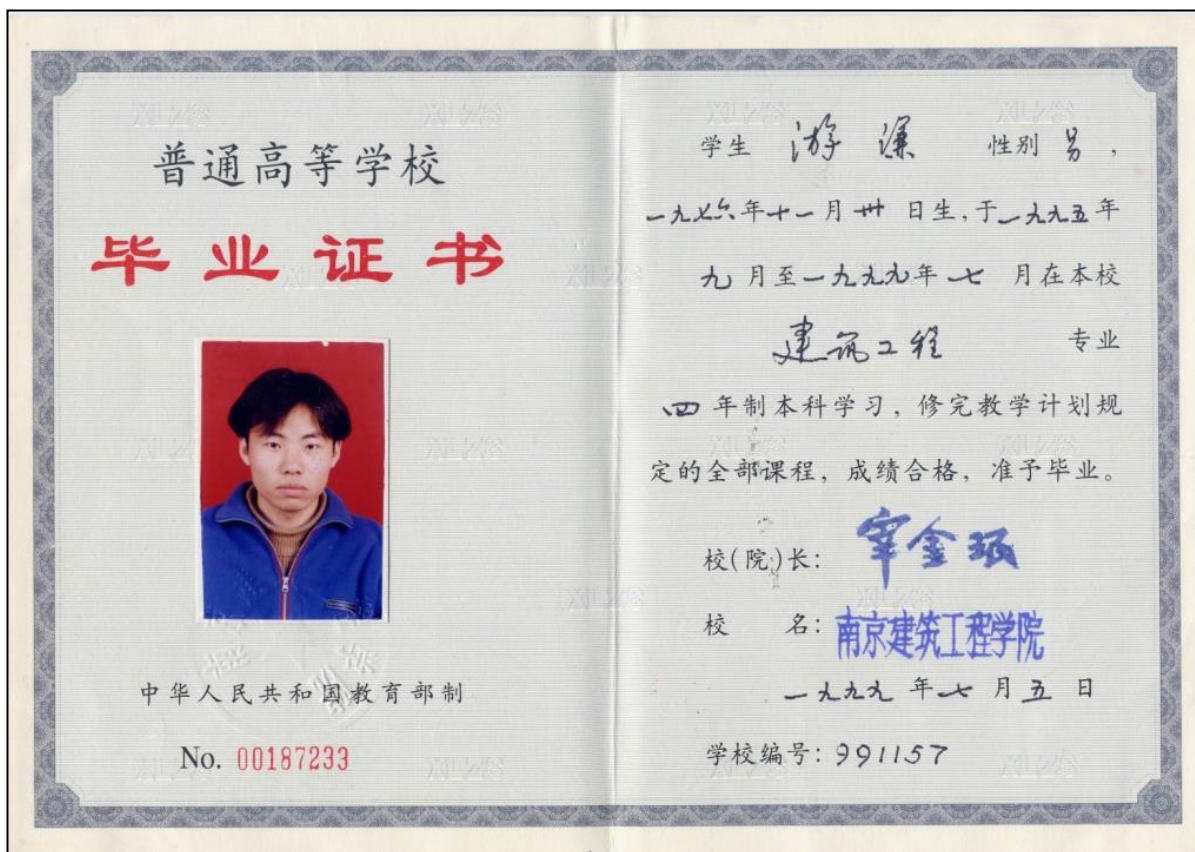 普通高等学校
毕业证书
中华人民共和国教育部制
No. 00187233
学生 游 谦 性别 男，
一九七六年十一月卅日生，于一九九五年
九月至一九九九年七月在本校
建筑工程 专业
四年制本科学习，修完教学计划规
定的全部课程，成绩合格，准予毕业。
校(院)长： 宰金珉
校 名： 南京建筑工程学院
一九九九年七月五日
学校编号：991157